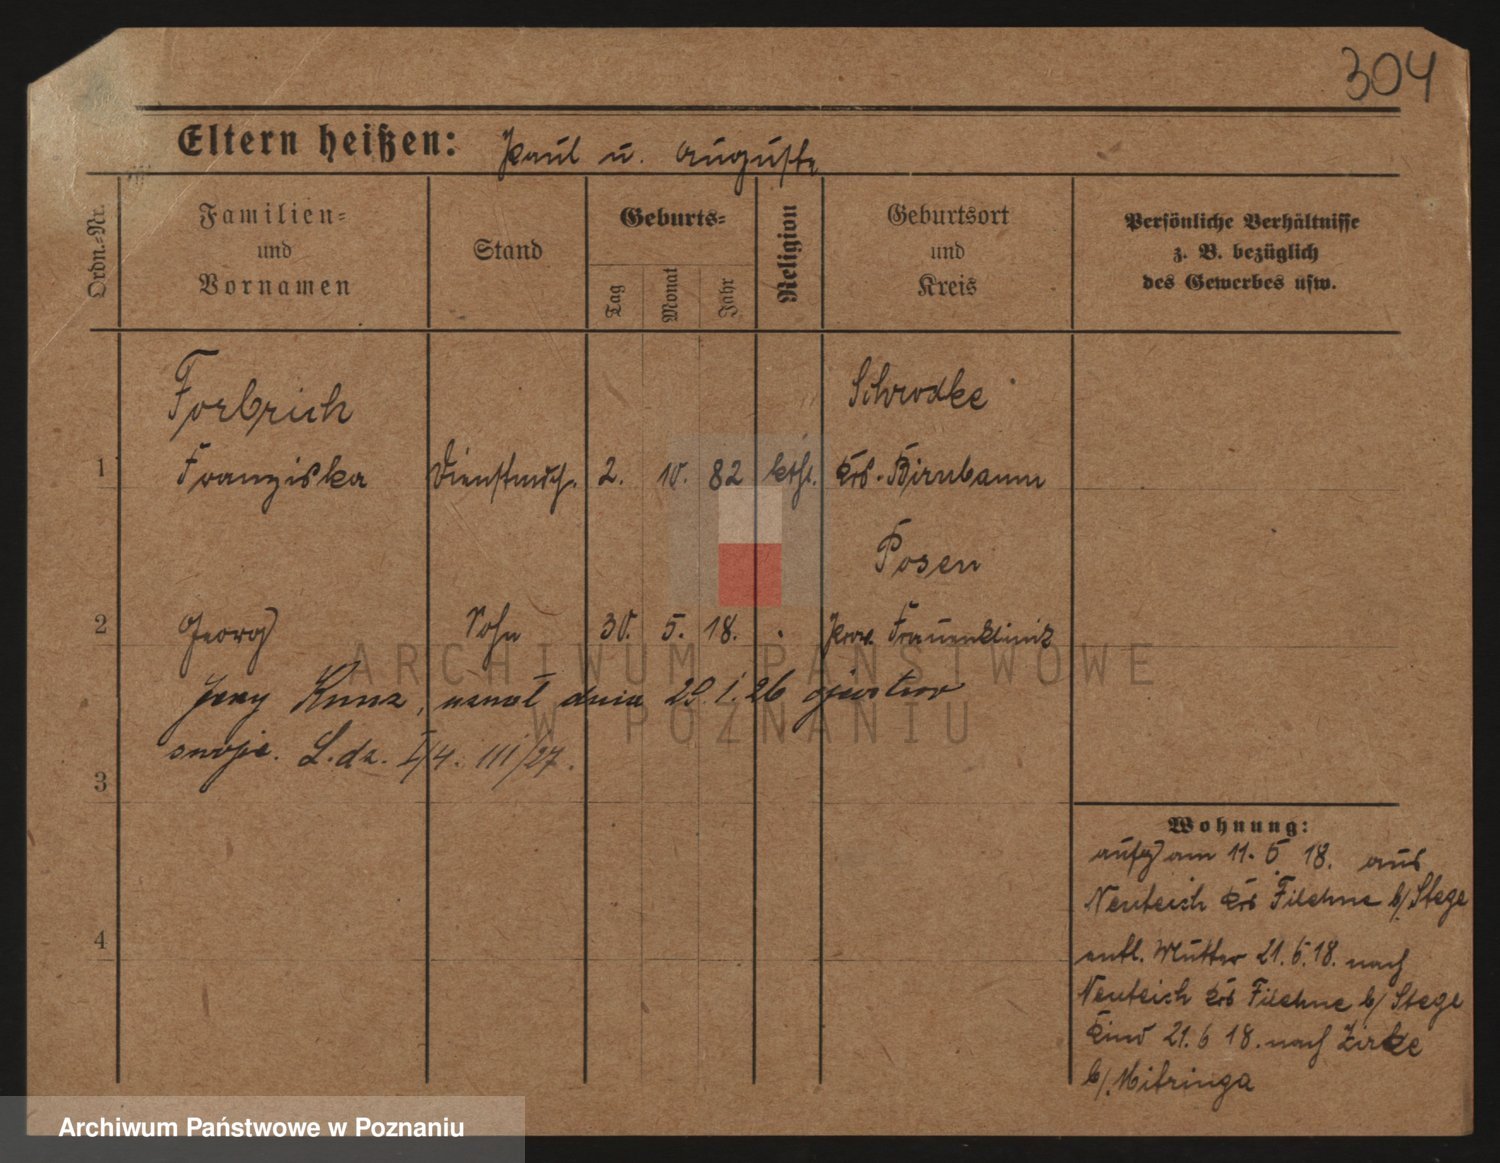 304
Eltern heißen: Paul u. Auguste
Ordn.-Nr.
Familien-
und
Vornamen
Stand
Geburts-
Tag
Monat
Jahr
Religion
Geburtsort
und
Kreis
Persönliche Verhältnisse
z. B. bezüglich
des Gewerbes usw.
Forbrich
Schrodke
1 Franziska Dienstmdch. 2. 10. 82 kath. Krs. Birnbaum
Posen
2 Georg Sohn 30. 5. 18. Prov. Frauenklinik
Jerzy Kunz, uznał dnia 29.1.26 ojcostwo
swoje. L.dz. I/4. III/27.
3
4
Wohnung:
aufg am 11. 5 18. aus
Neuteich Krs Filehne b/ Stege
entl. Mutter 21.6.18. nach
Neuteich Krs Filehne b/ Stege
Kind 21.6 18. nach Zirke
b/. Mitringa
ARCHIWUM PAŃSTWOWE
W POZNANIU
Archiwum Państwowe w Poznaniu